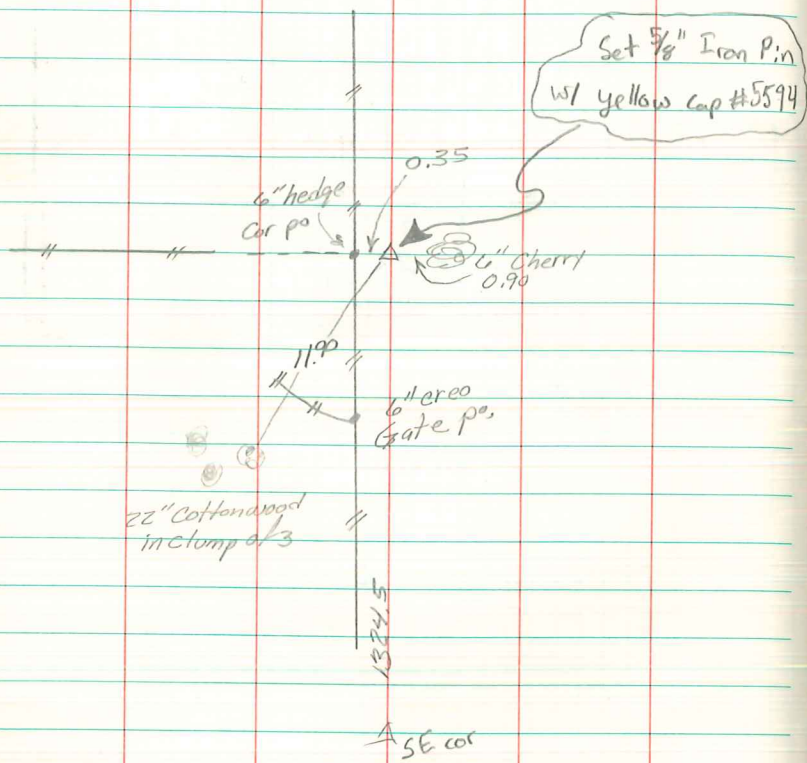 Set 5/8" Iron Pin
w/ yellow cap #5594
0.35
6" hedge
Cor po
6" Cherry
0.90
11.90
6" creo
Gate po,
22" Cottonwood
in clump of 3
1324.5
SE cor